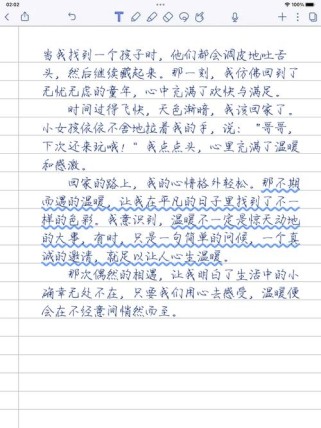 02:02
当我找到一个孩子时，他们都会调皮地吐舌
头，然后继续藏起来。那一刻，我仿佛回到了
无忧无虑的童年，心中充满了欢快与满足。
时间过得飞快，天色渐暗，我该回家了。
小女孩依依不舍地拉着我的手，说：“哥哥，
下次还来玩哦！”我点点头，心里充满了温暖
和感激。
回家的路上，我的心情格外轻松。那不期
而遇的温暖，让我在平凡的日子里找到了不一
样的色彩。我意识到，温暖不一定是惊天动地
的大事，有时，只是一句简单的问候，一个真
诚的邀请，就足以让人心生温暖。
那次偶然的相遇，让我明白了生活中的小
确幸无处不在，只要我们用心去感受，温暖便
会在不经意间悄然而至。